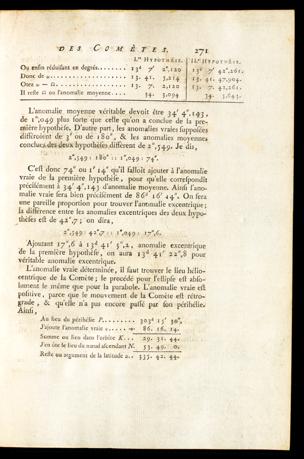 DES COMÈTES. 271
I.re HYPOTHÈSE. II.e HYPOTHÈSE.
Ou enfin réduisant en degrés........ 13d 7' 2",120 13d 7' 42",261.
Donc de u........ 13. 41. 3,214 13. 41. 47,904.
Otez u — Ω........ 13. 7. 2,120 13. 7. 42,261.
Il reste Ω ou l'anomalie moyenne.... 34. 3,094 34. 3,643.
L'anomalie moyenne véritable devoit être 34' 4",143,
de 1",049 plus forte que celle qu'on a conclue de la pre-
mière hypothèse. D'autre part, les anomalies vraies supposées
différoient de 3' ou de 180", & les anomalies moyennes
conclues des deux hypothèses diffèrent de 2",549. Je dis,
2",549 : 180" :: 1",049 : 74".
C'est donc 74" ou 1' 14" qu'il falloit ajouter à l'anomalie
vraie de la première hypothèse, pour qu'elle correspondît
précisément à 34' 4",143 d'anomalie moyenne. Ainsi l'ano-
malie vraie sera bien précisément de 86d 16' 14". On fera
une pareille proportion pour trouver l'anomalie excentrique;
la différence entre les anomalies excentriques des deux hypo-
thèses est de 42",7; on dira,
2",549 : 42",7 :: 1",049 : 17",6.
Ajoutant 17",6 à 13d 41' 5",2, anomalie excentrique
de la première hypothèse, on aura 13d 41' 22",8 pour
véritable anomalie excentrique.
L'anomalie vraie déterminée, il faut trouver le lieu hélio-
centrique de la Comète; le procédé pour l'ellipse est abso-
lument le même que pour la parabole. L'anomalie vraie est
positive, parce que le mouvement de la Comète est rétro-
grade, & qu'elle n'a pas encore passé par son périhélie.
Ainsi,
Au lieu du périhélie P......... 303d 15' 30",
J'ajoute l'anomalie vraie + 86. 16. 14.
Somme ou lieu dans l'orbite K... 29. 31. 44.
J'en ôte le lieu du nœud ascendant N. 53. 49. 0.
Reste ou argument de la latitude 335. 42. 44.